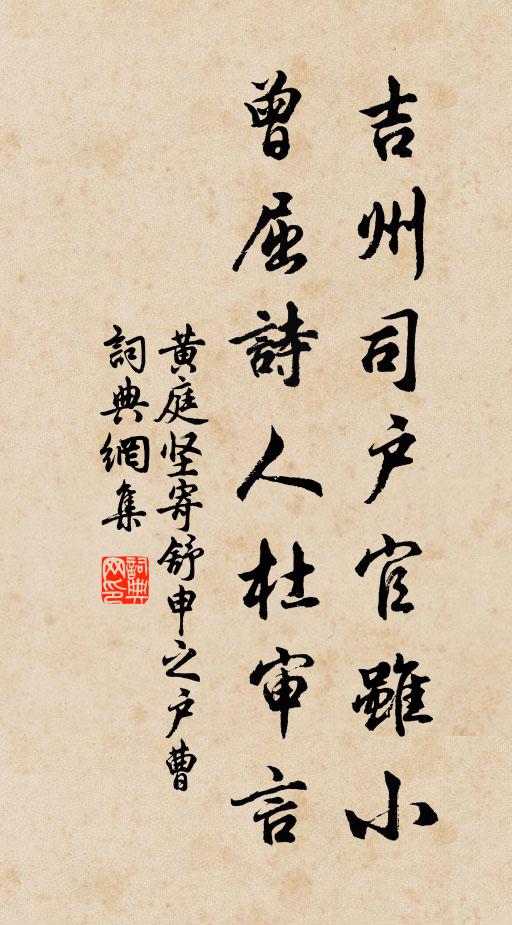 吉州司户官雖小
曾屈詩人杜审言
黄庭坚寄舒申之户曹
詞典網集
詞典网印